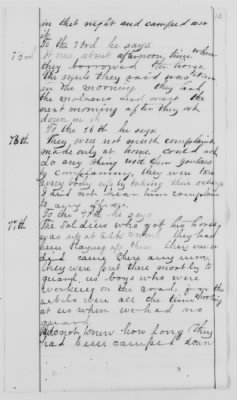 in that night and camped near
it.
To the 73rd he says
73rd It was about afternoon time when
they borrowed the horse.
The mule they said was taken
in the morning. they had
the molasses and went the
next morning after they set
down in it.
To the 76th he says
76th They were not much complaint
made only at home. could not
do any thing with the Yankees
by complaining, they were too
every body afraid taking their
I did not hear him complain
to any officer.
To the 77th he says
77th The Soldiers who got his horse
was up at C & D Road they had
been staying up there they
did came there any
they were put there mostly to
guard us boys who were
working on the road. for the
rebels were all the time shooting
at us when we had no
guard.
I do not know how long they
had been camped down